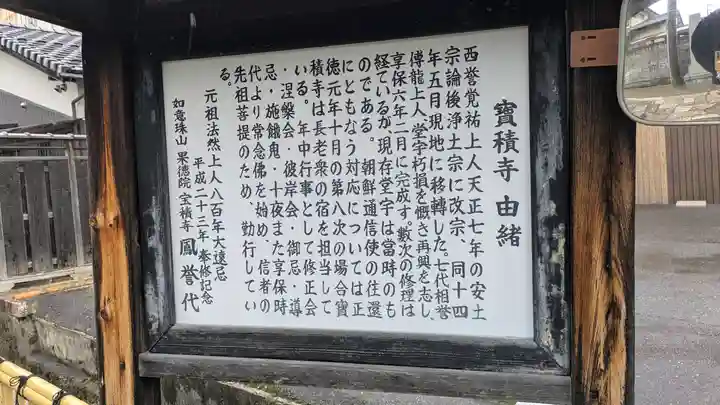 寶積寺 由緒
西誉覚祐上人天正七年の安土
宗論後浄土宗に改宗、同十四
年五月現地に移轉した。七代相誉
傳龍上人、堂宇朽損を慨き再興を志し、
享保六年二月に完成す。数次の修理は
経ているが現存堂宇は當時のも
のである。朝鮮通信使の往還
にともなう対応については正
徳元年十月の第八次の場合寶
積寺は長老衆の宿を担当して
いる。年中行事として修正会
・涅槃会・彼岸会・御忌・導
忌・施餓鬼・十夜また享保時
代より常念佛を始め、信者の
先祖菩提のため、勤行してい
る。
元祖法然上人八百年大遠忌
平成二十三年 奉修記念
如意珠山 果徳院 宝積寺 鳳誉代